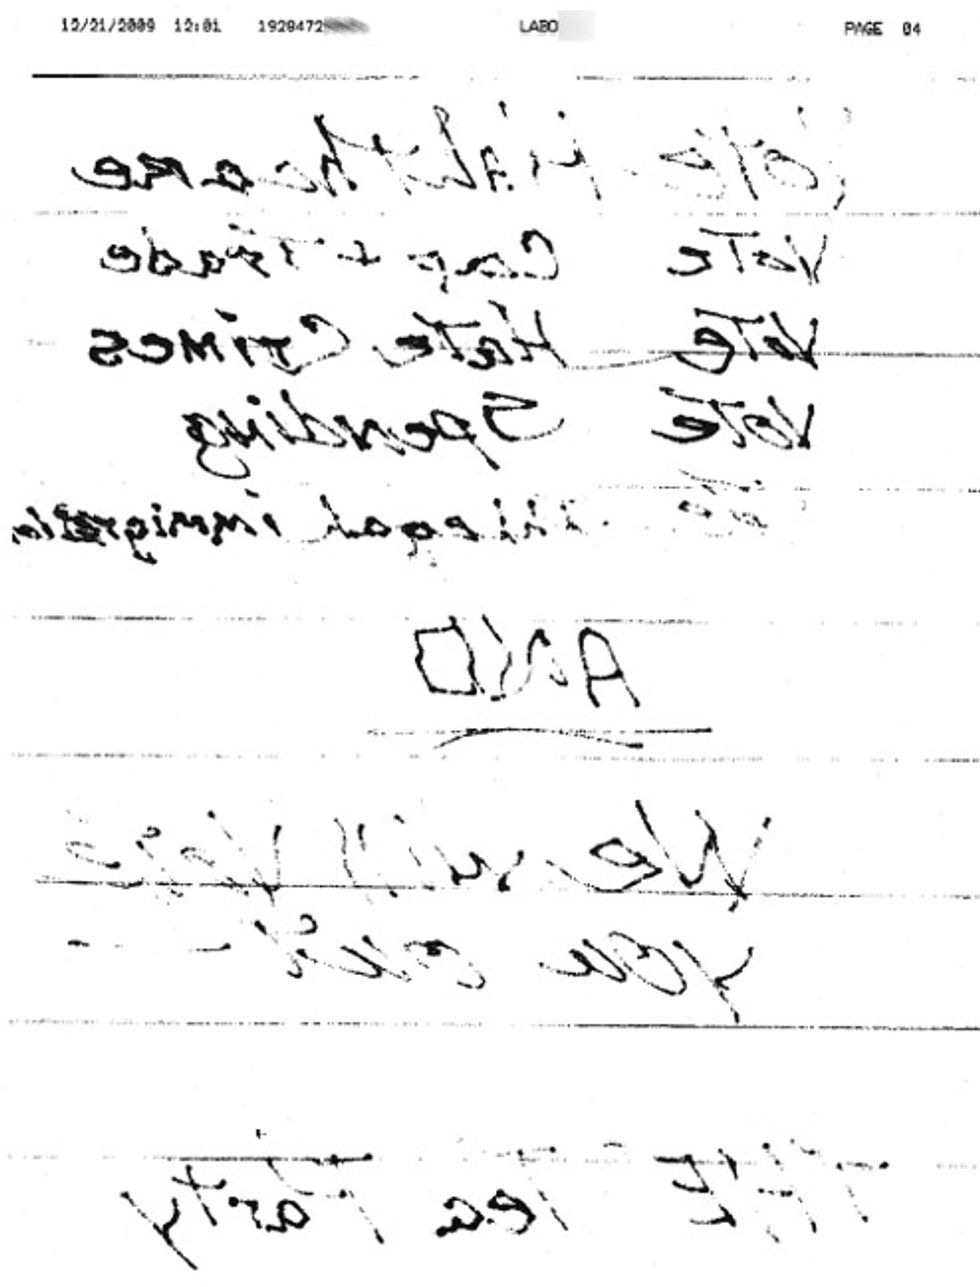 12/21/2009 12:01 1928472 LABO PAGE 04
Vote Halthcare
VoTe Cap + Trade
VoTe HaTe CriMes
VoTe Spending
illegal immigratio
AND
We will Vote
you out - -
THE Tea Party